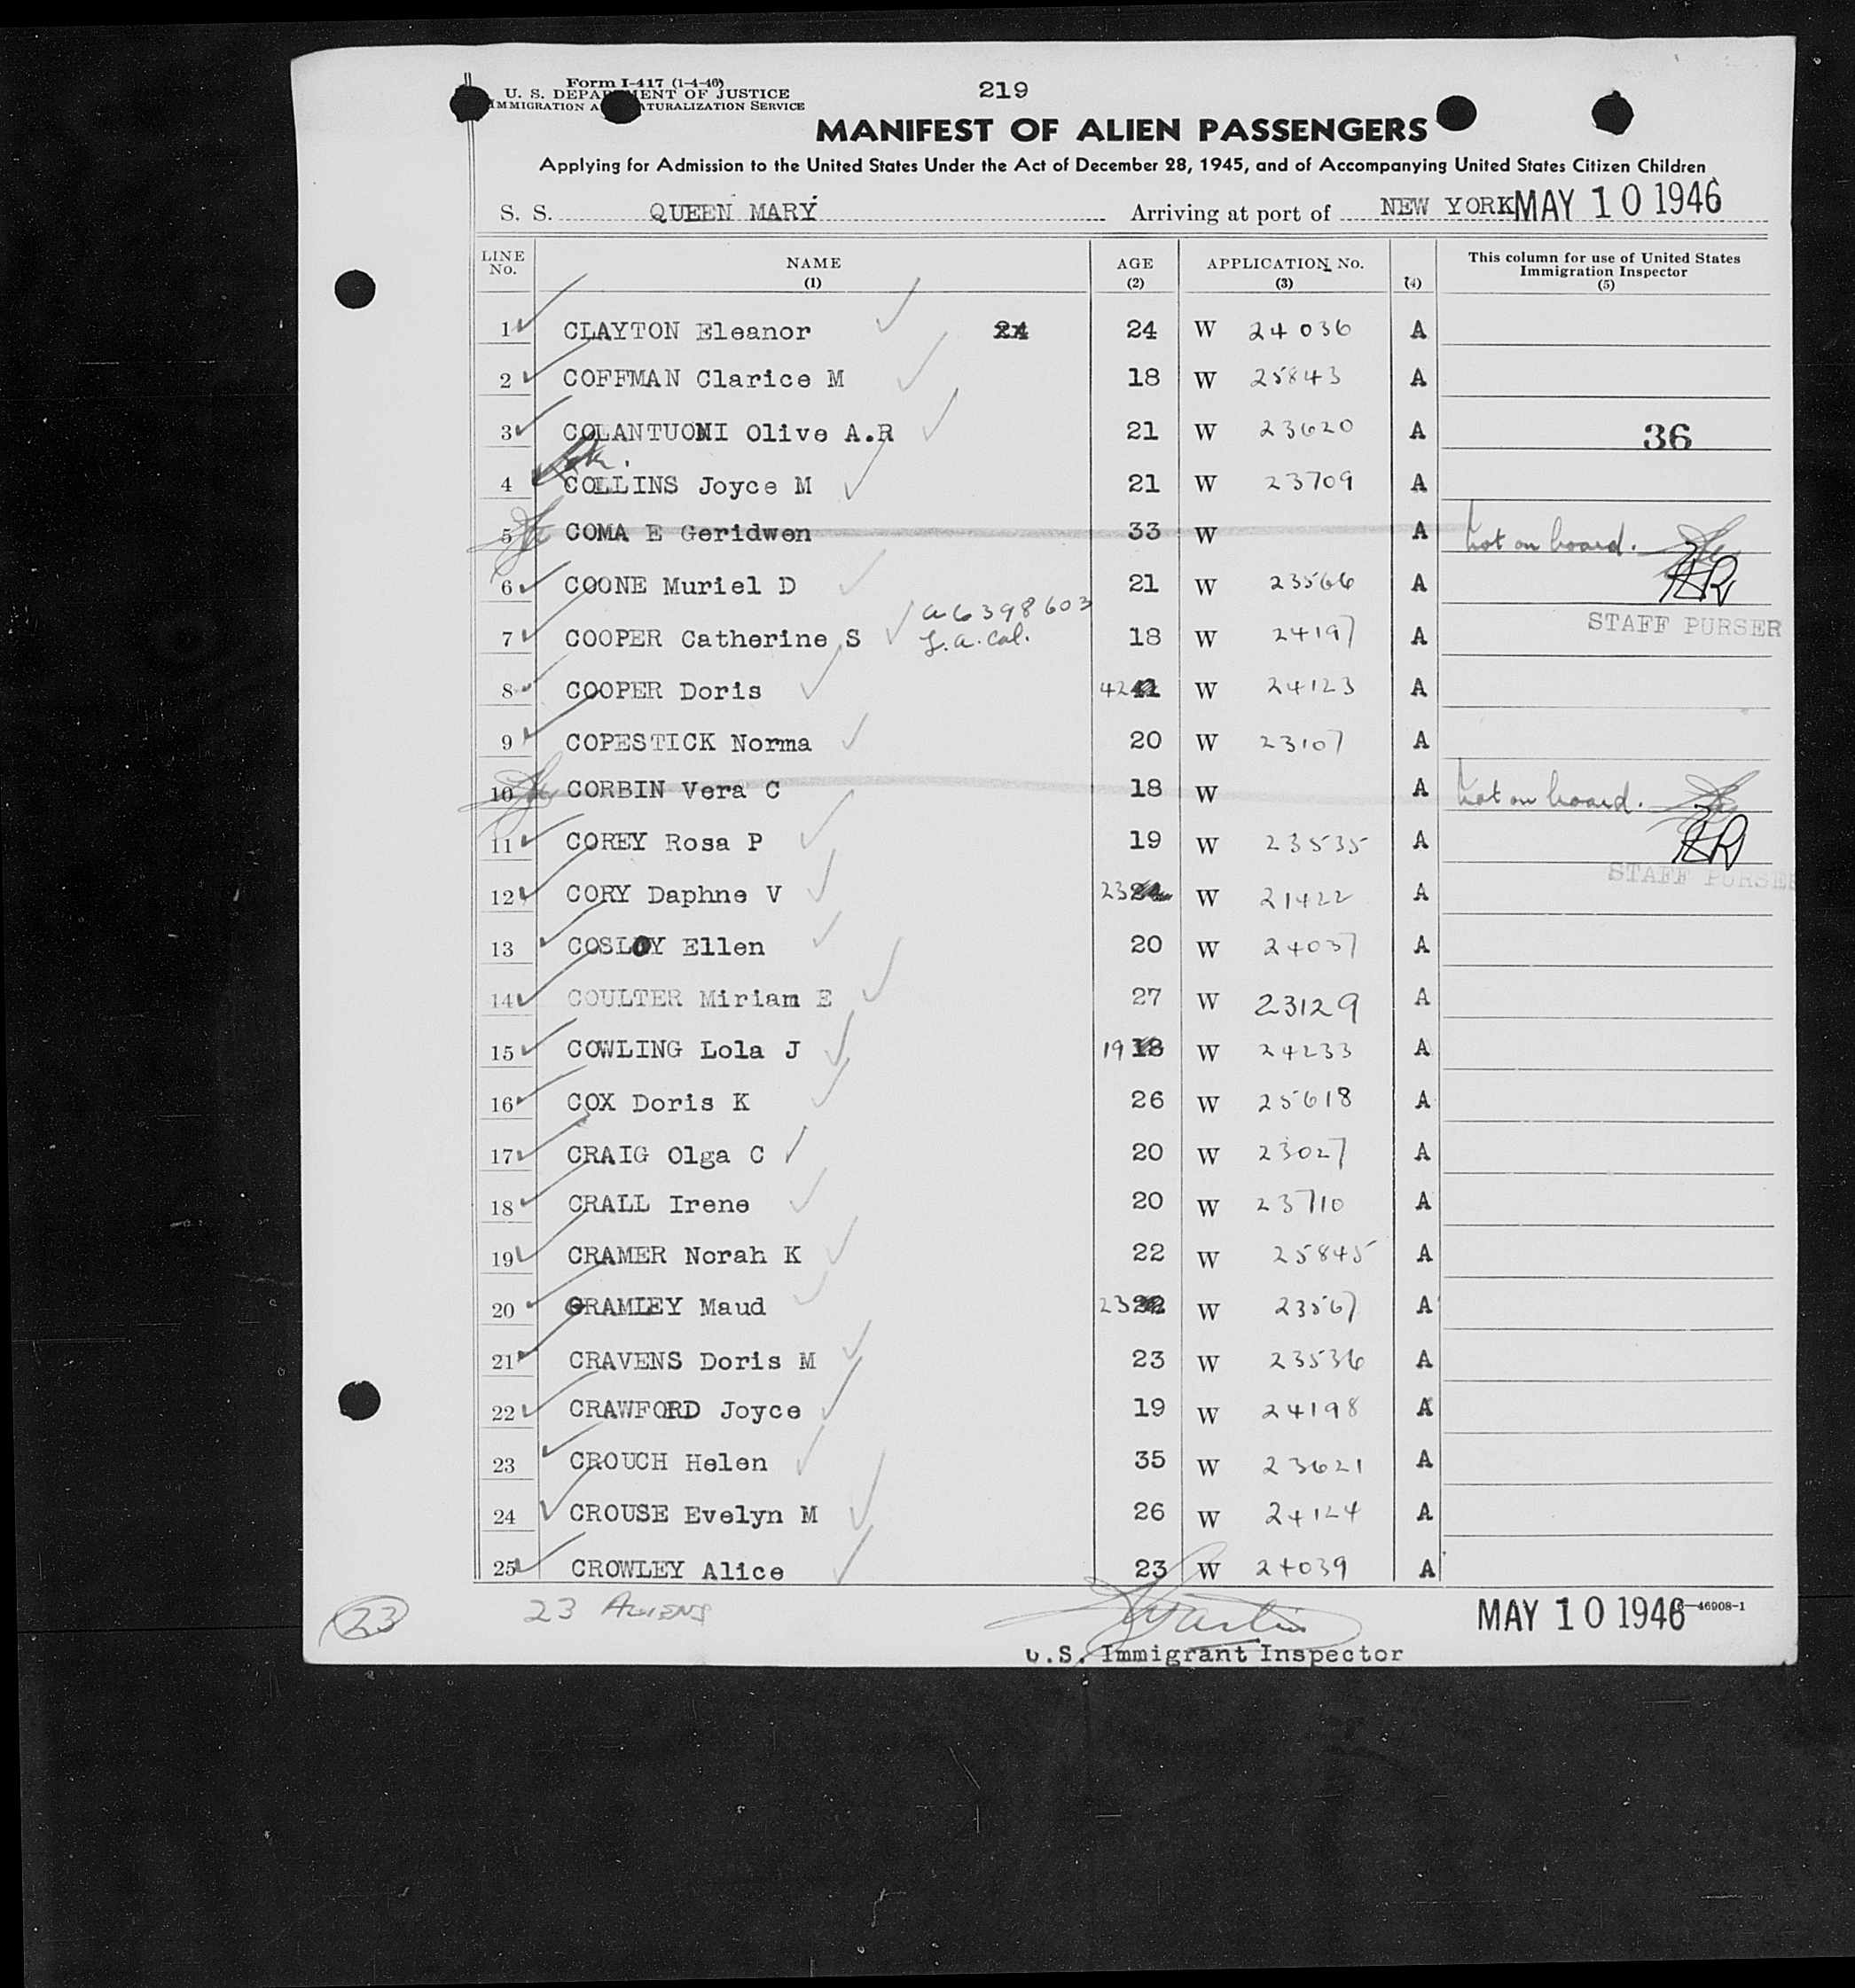 Form I-417 (1-4-46)
U. S. DEPARTMENT OF JUSTICE
IMMIGRATION AND NATURALIZATION SERVICE
219
MANIFEST OF ALIEN PASSENGERS
Applying for Admission to the United States Under the Act of December 28, 1945, and of Accompanying United States Citizen Children
S. S. QUEEN MARY Arriving at port of NEW YORK MAY 10 1946
LINE No. NAME (1) AGE (2) APPLICATION No. (3) (4) This column for use of United States Immigration Inspector (5)
1 CLAYTON Eleanor 24 24 W 24036 A
2 COFFMAN Clarice M 18 W 25843 A
3 COLANTUONI Olive A.R 21 W 23620 A 36
ok.
4 COLLINS Joyce M 21 W 23709 A
5 COMA E Geridwen 33 W A not on board.
6 COONE Muriel D 21 W 23566 A
a6398603
7 COOPER Catherine S L.a. cal. 18 W 24197 A STAFF PURSER
8 COOPER Doris 42 W 24123 A
9 COPESTICK Norma 20 W 23107 A
10 CORBIN Vera C 18 W A not on board.
11 COREY Rosa P 19 W 23535 A
STAFF PURSER
12 CORY Daphne V 23 W 21422 A
13 COSLOY Ellen 20 W 24037 A
14 COULTER Miriam E 27 W 23129 A
15 COWLING Lola J 19 18 W 24233 A
16 COX Doris K 26 W 25618 A
17 CRAIG Olga C 20 W 23027 A
18 CRALL Irene 20 W 23710 A
19 CRAMER Norah K 22 W 25845 A
20 GRAMLEY Maud 23 22 W 23567 A
21 CRAVENS Doris M 23 W 23536 A
22 CRAWFORD Joyce 19 W 24198 A
23 CROUCH Helen 35 W 23621 A
24 CROUSE Evelyn M 26 W 24124 A
25 CROWLEY Alice 23 W 24039 A
23 23 ALIENS MAY 10 1946 —46908-1
U.S. Immigrant Inspector